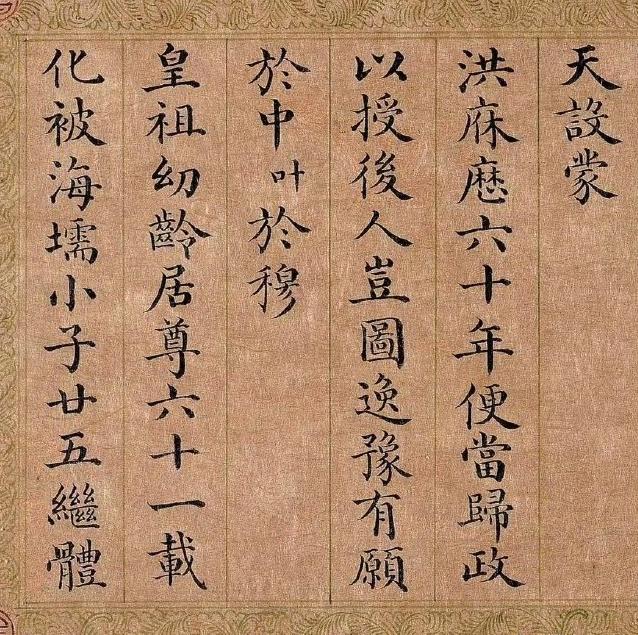 天設蒙
洪庥厯六十年便當歸政
以授後人豈圖逸豫有願
於中叶於穆
皇祖幼齡居尊六十一載
化被海壖小子廿五繼體